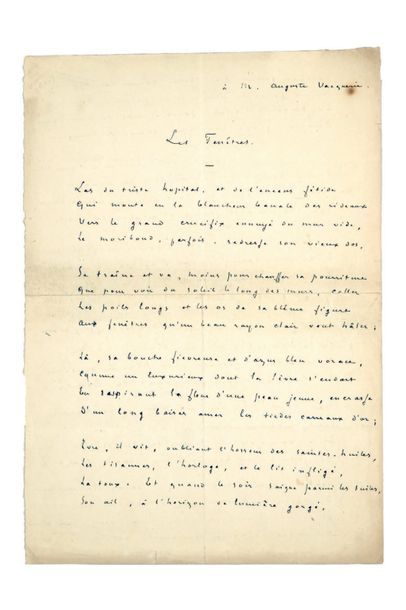 à M. Auguste Vacquerie.
Les Fenêtres.
Las du triste hopital, et de l'encens fétide
Qui monte en la blancheur banale des rideaux
Vers le grand crucifix ennuyé du mur vide,
Le moribond, parfois, redresse son vieux dos,
Se traîne et va, moins pour chauffer sa pourriture
Que pour voir du soleil le long des murs, coller
Les poils longs et les os de sa blême figure
Aux fenêtres qu'un beau rayon clair veut hâler;
Là, sa bouche fiévreuse et d'azur bleu vorace,
Comme un luxurieux dont la lèvre s'endort
En aspirant la fleur d'une peau jeune, encrasse
D'un long baiser amer les tièdes carreaux d'or;
Ivre, il vit, oubliant l'horreur des saintes-huiles,
Les tisannes, l'horloge, et le lit infligé,
La toux. Et quand le soir saigne parmi les tuiles,
Son œil, à l'horizon de lumière gorgé,